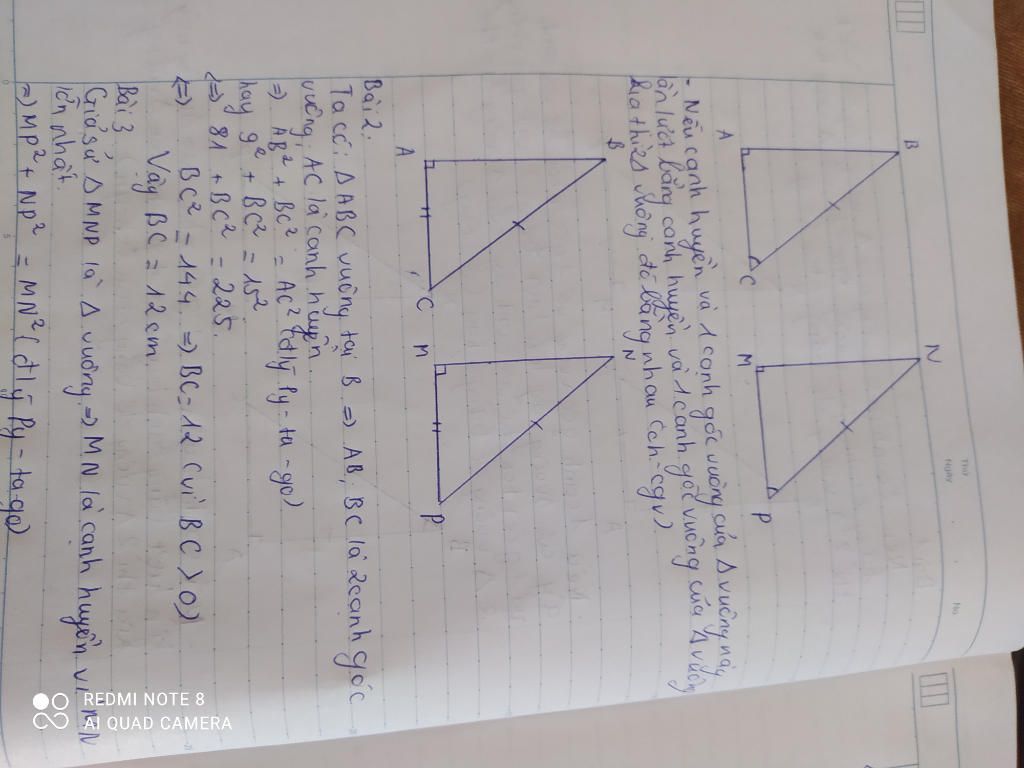 Thứ
Ngày
No
B
N
A
C
M
P
- Nếu cạnh huyền và 1 cạnh góc vuông của Δ vuông này
lần lượt bằng cạnh huyền và 1 cạnh góc vuông của Δ vuông
kia thì 2Δ vuông đó bằng nhau (ch-cgv)
B
N
A
C
M
P
Bài 2:
Ta có: Δ ABC vuông tại B => AB, BC là 2 cạnh góc
vuông, AC là cạnh huyền
=> AB² + BC² = AC² (đ/lý Py-ta-go)
hay 9² + BC² = 15²
<=> 81 + BC² = 225
<=> BC² = 144 => BC = 12 (vì BC > 0)
Vậy BC = 12 cm
Bài 3
Giả sử Δ MNP là Δ vuông => MN là cạnh huyền vì MN
lớn nhất.
=> MP² + NP² = MN² (đ/lý Py-ta-go)
REDMI NOTE 8
AI QUAD CAMERA